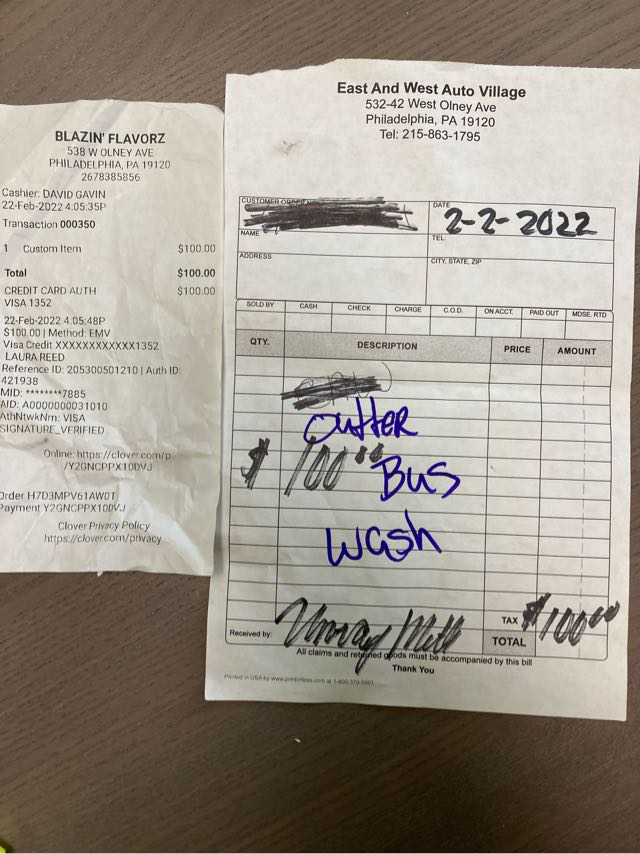 BLAZIN' FLAVORZ
538 W OLNEY AVE
PHILADELPHIA, PA 19120
2678385856
Cashier: DAVID GAVIN
22-Feb-2022 4:05:35P
Transaction 000350
1 Custom Item $100.00
Total $100.00
CREDIT CARD AUTH $100.00
VISA 1352
22-Feb-2022 4:05:48P
$100.00 | Method: EMV
Visa Credit XXXXXXXXXXXX1352
LAURA REED
Reference ID: 205300501210 | Auth ID:
421938
MID: ********7885
AID: A0000000031010
AthNtwkNm: VISA
SIGNATURE_VERIFIED
Online: https://clover.com/p
/Y2GNCPPX10DVJ
Order H7D3MPV61AW01
Payment Y2GNCPPX10DVJ
Clover Privacy Policy
https://clover.com/privacy
East And West Auto Village
532-42 West Olney Ave
Philadelphia, PA 19120
Tel: 215-863-1795
CUSTOMER ORDER
DATE
2-2-2022
NAME
TEL.
ADDRESS
CITY, STATE, ZIP
SOLD BY CASH CHECK CHARGE C.O.D. ON ACCT. PAID OUT MDSE. RTD
QTY. DESCRIPTION PRICE AMOUNT
outter
$ 100.00 Bus
wash
TAX
TOTAL $100.00
Received by:
All claims and returned goods must be accompanied by this bill
Thank You